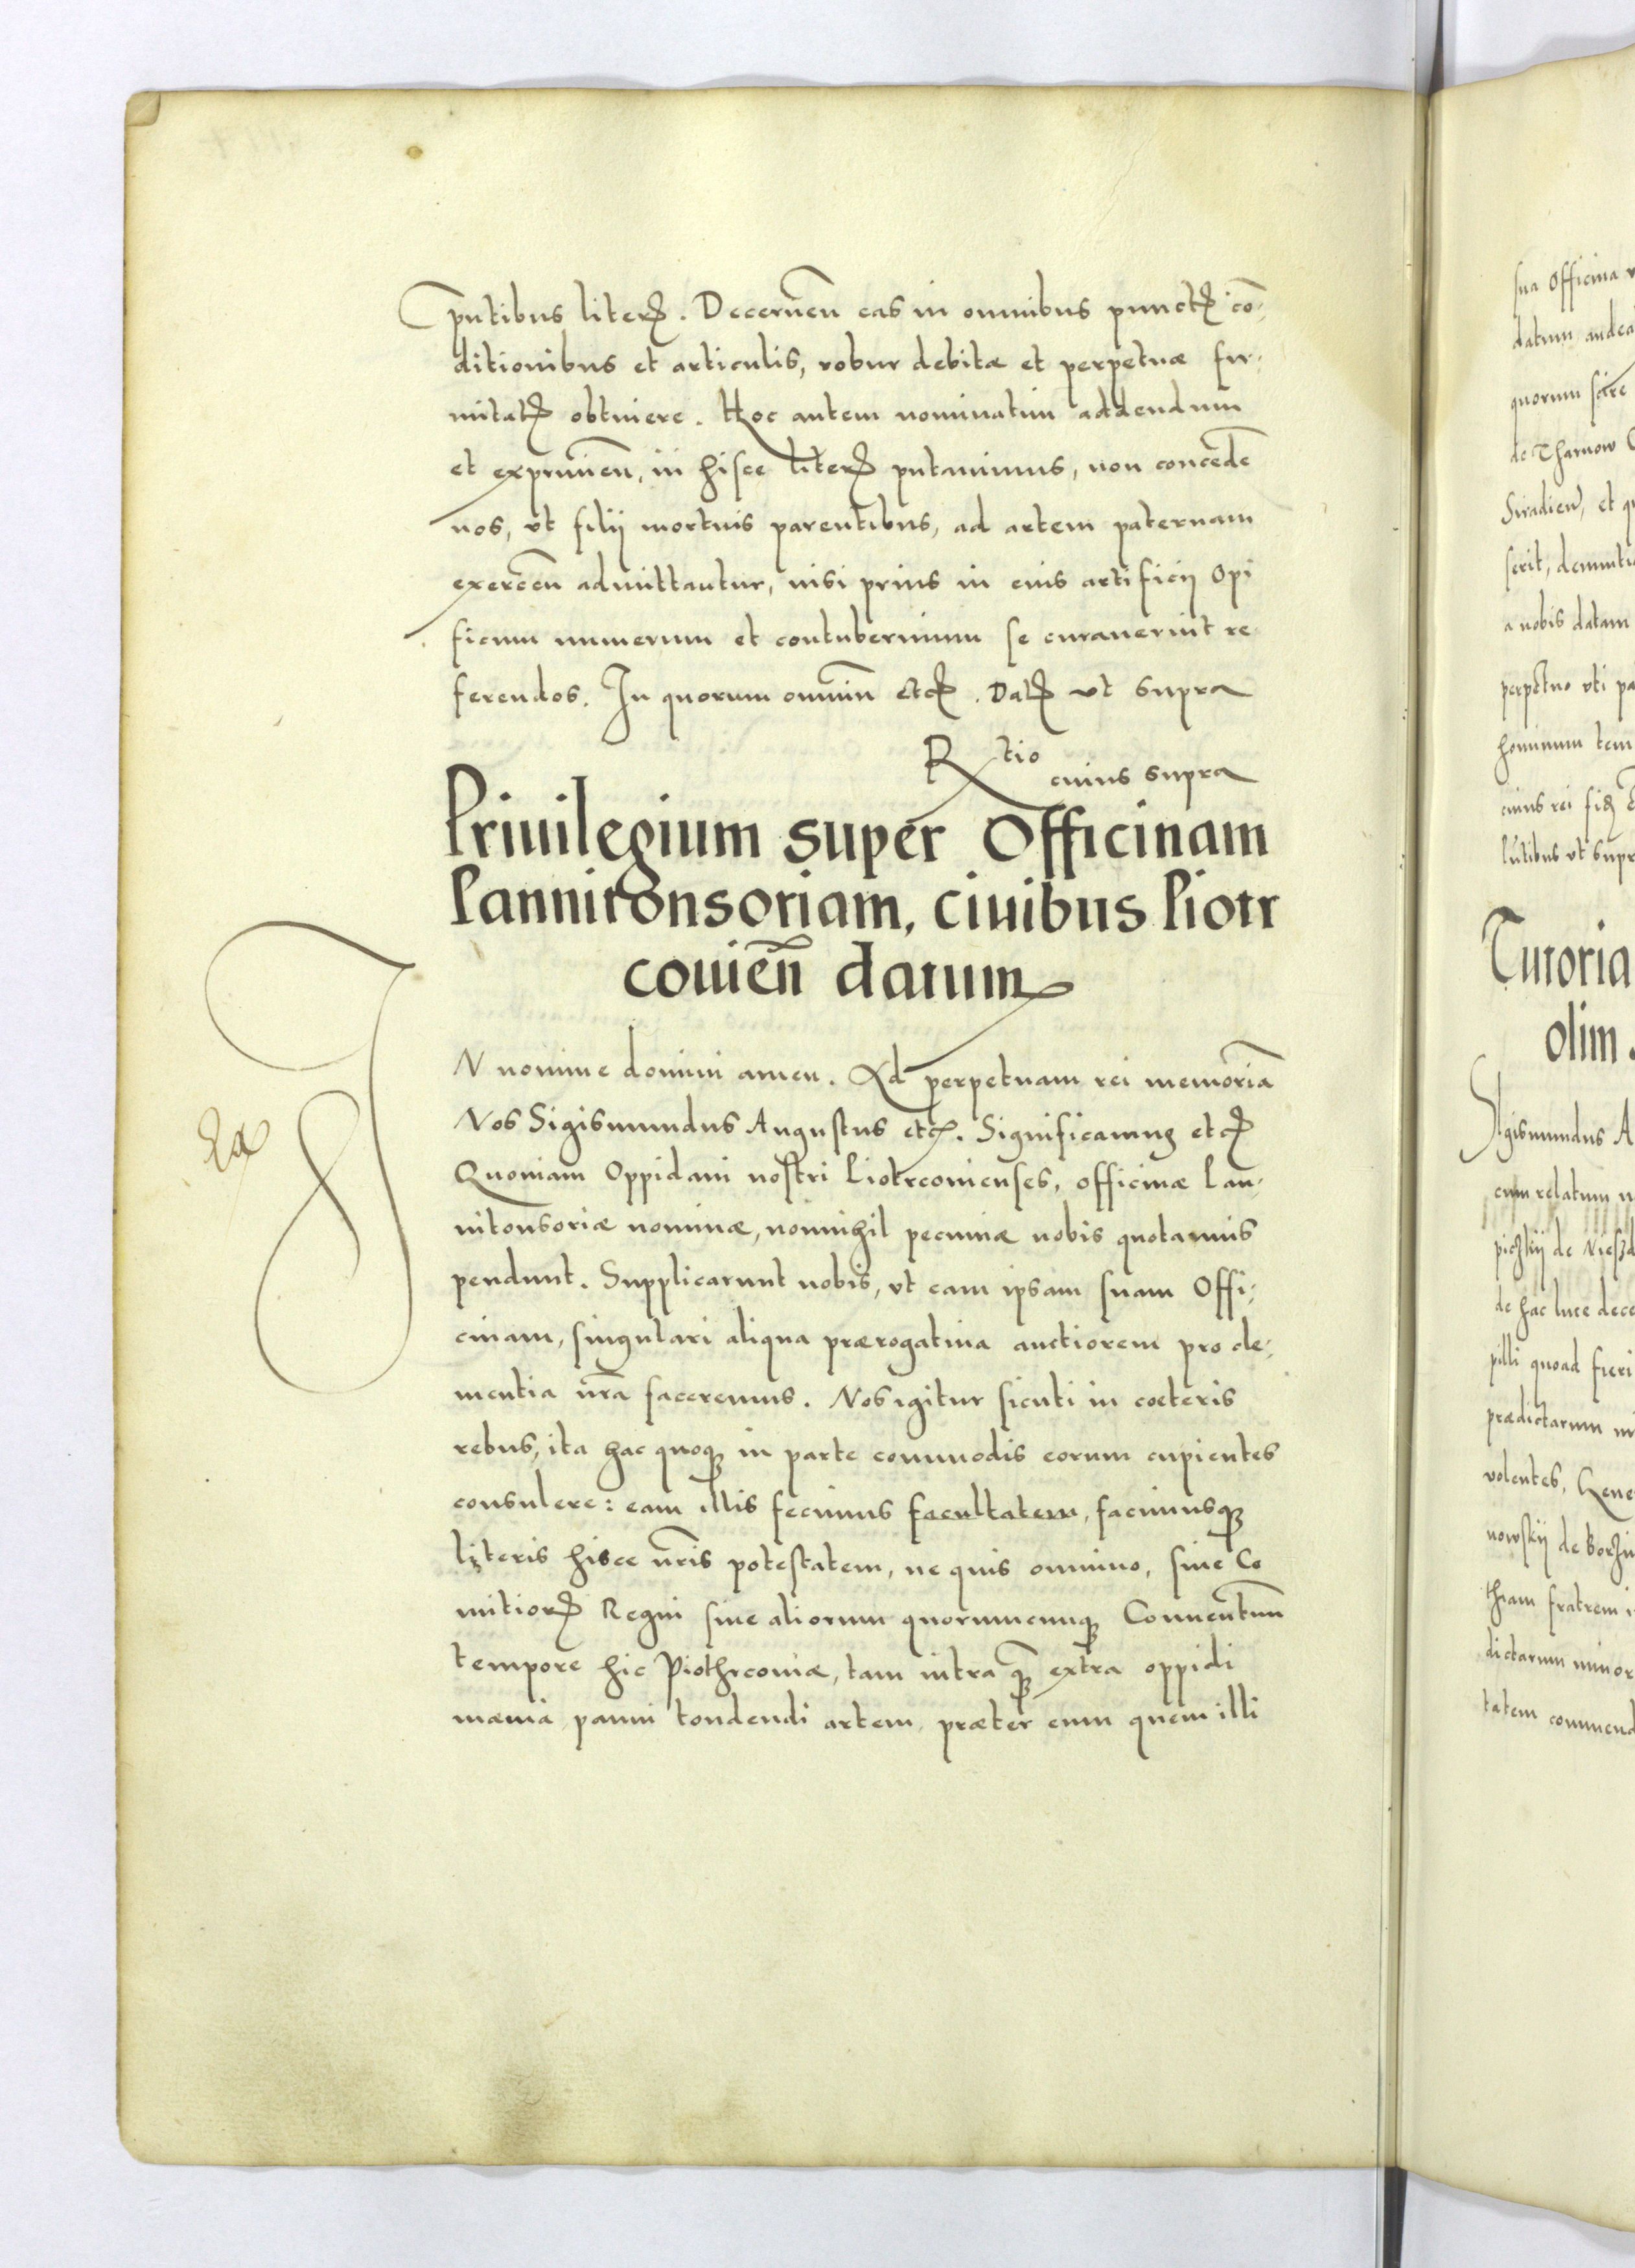 pn̄tibus literꝭ. Decerneñ eas in omnibus punctꝭ cō-
ditionibus et articulis, robur debitæ et perpetuæ fir-
mitatꝭ obtinere. Hoc autem nominatim addendum
et exprimeñ, in hisce literꝭ putauimus, non concede͞
nos, vt filii mortuis parentibus, ad artem paternam
exerceñ admittantur, nisi prius in eius artificii Opi
ficum numerum et contubernium se curauerint re
ferendos. In quorum omniū etcꝭ. Datꝭ vt supra
R tio
cuius supra
Priuilegium super Officinam
Pannitonsoriam, ciuibus Piotr
couieñ datum
IN nomine domini amen. Ad perpetuam rei memoriā
Nos Sigismundus Augustus etcꝭ. Significamuꝫ etcꝭ
Quoniam Oppidani nostri Piotrcouienses, officinæ Pan-
nitonsoriæ nominæ, nonnihil pecuniæ nobis quotannis
pendunt. Supplicarunt nobis, vt eam ipsam suam Offi-
cinam, singulari aliqua prærogatiua auctiorem pro cle-
mentia nr̄a faceremus. Nos igitur sicuti in coeteris
rebus, ita hac quoqꝫ in parte commodis eorum cupientes
consulere: eam illis fecimus facultatem, facimusqꝫ
literis hisce nr̄is potestatem, ne quis omnino, siue Co
mitiorꝭ Regni siue aliorum quorumcunqꝫ Conuentuū
tempore hic Piothrcouiæ, tam intra qꝫ̄ extra oppidi
mænia panni tondendi artem, præter eum quem illi
sua Officina
datum audea
quorum scire
de Tharnow
Siradieñ, et q
serit, demu
a nobis datam
perpetuo vti pa
hominum tem
cuius rei fidꝫ
vt supr
Tutoria
olim.
Sigismundus A
cum relatum
de
de hac luce dece
pilli quoad fieri
prædictarum
volentes,
nowskij de
thiam fratrem
dictarum minor
tatem commend